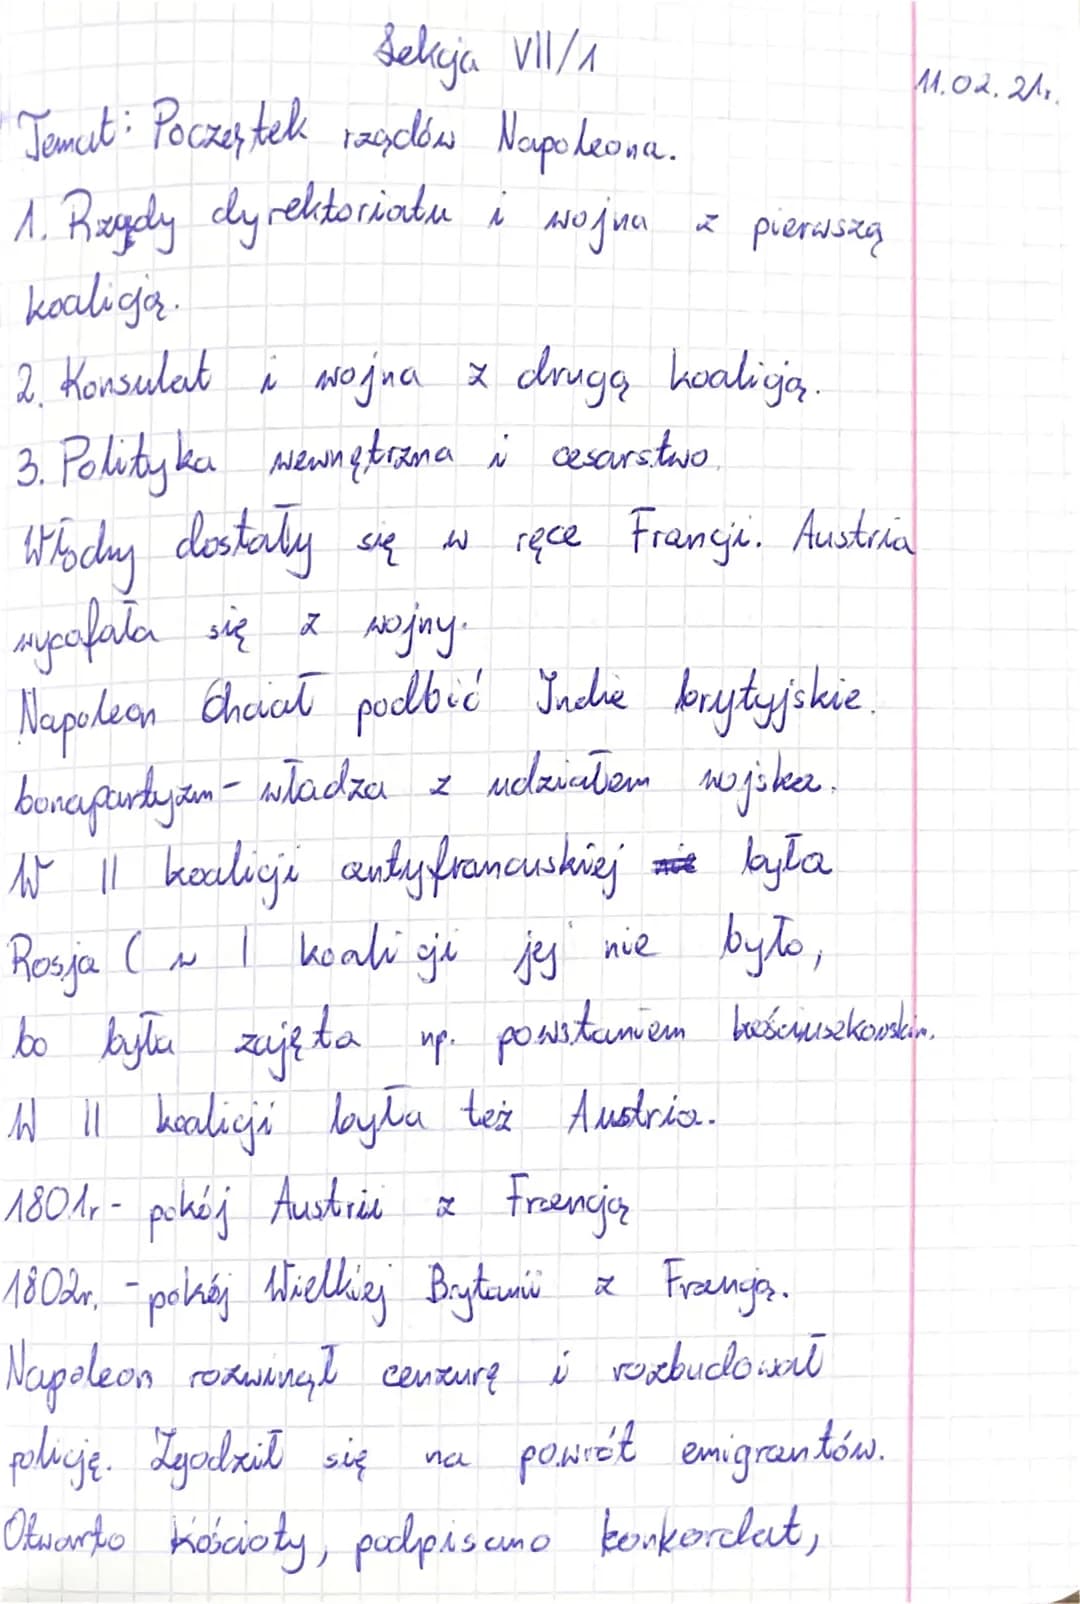 Lekcja VII/1
11.02.21r.
Temat: Początek rządów Napoleona.
1. Rządy dyrektoriatu i wojna z pierwszą
koalicją.
2. Konsulat i wojna z drugą koalicją.
3. Polityka wewnętrzna i cesarstwo.
Włochy dostały się w ręce Francji. Austria
wycofała się z wojny.
Napoleon Chciał podbić Indie brytyjskie.
bonapartyzm - władza z udziałem wojska.
W II koalicji antyfrancuskiej ~~nie~~ była
Rosja ( w I koalicji jej nie było,
bo była zajęta np. powstaniem kościuszkowskim.
W II koalicji była też Austria.
1801r - pokój Austrii z Francją
1802r. - pokój Wielkiej Brytanii z Francją.
Napoleon rozwinął cenzurę i rozbudował
policję. Zgodził się na powrót emigrantów.
Otwarto Kościoły, podpisano konkordat,